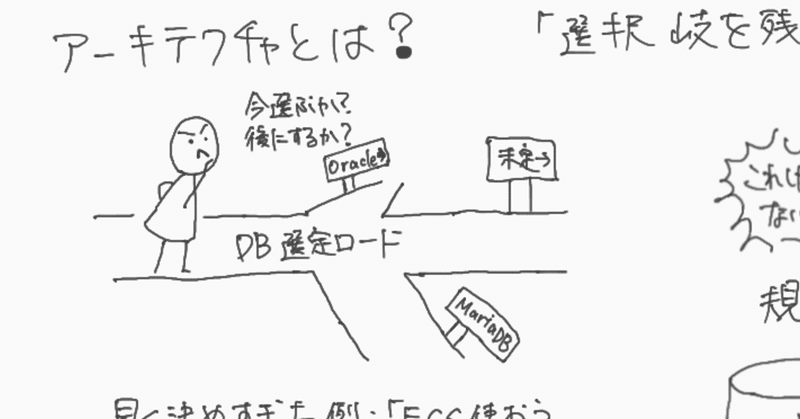 アーキテクチャとは?
「選択岐を残
今選ぶか?
後にするか?
Oracle→
未定→
DB選定ロード
MariaDB
これけ
ない
規
早く決めすぎた例:「EGG使おう